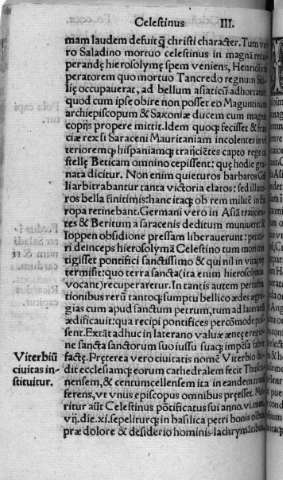 Celestinus III.
mam laudem defuit ꝙ christi character. Tum ve
ro Saladino mortuo celestinus in magnā recu
perandę hierosolymę spem veniens, Henricū im
peratorem quo mortuo Tancredo regnum Sici
lię occupauerat, ad bellum asiaticū adhortatur
quod cum ipse obire non posset eo Maguntinū
archiepiscopum & Saxoniæ ducem cum magnis
copijs propere mittit. Idem quoqȝ fecisset & frā
ciæ rex si Saraceni Mauritaniam incolentes in vl
teriorem hispaniamqȝ transeūtes capto rege ca
stellę Beticam omnino cepissent: quę hodie gra
nata dicitur. Non enim quieturos barbaros Gal
li arbitrabantur tanta victoria elatos: sed illatu
ros bella finitimis: hanc itaqȝ ob rem milites in Eu
ropa retinebant. Germani vero in Asiā traņcen
tes & Beritum a saracenis deditum muniuere &
Ioppen obsidione pressam liberauerunt: potiti
ri deinceps hierosolymā Celestino tum mortuo
tigisset pontifici sanctissimo & qui nil in vita
termisit: quo terra sancta (ita enim hierosolymā
vocant) recuperaretur. In tantis autem pertur
tionibus rerū tantoqȝ sumptu bellico ædes
gias cum apud sanctum petrum, tum ad lateranū
ædificauit: qua recipi pontifices percōmode
sent. Extāt adhuc in laterano valuæ ante regio
ne sancta sanctorum suo iussu suaqȝ impēsa
factę. Pręterea vero ciuitatis nomē Viterbio
dit ecclesiamqȝ eorum cathedralem fecit Thusca
nensem, & centumcellensem ita in eandem trans
ferens, vt vnus episcopus omnibus pręsset. Mo
ritur aūt Celestinus pōtificatus sui anno. vi. mense
vij. die. xi. sepelitur qȝ in basilica petri bonis omnibus
præ dolore & desiderio hominis lachrymantibus
Viterbiū
ciuitas in-
stituitur.